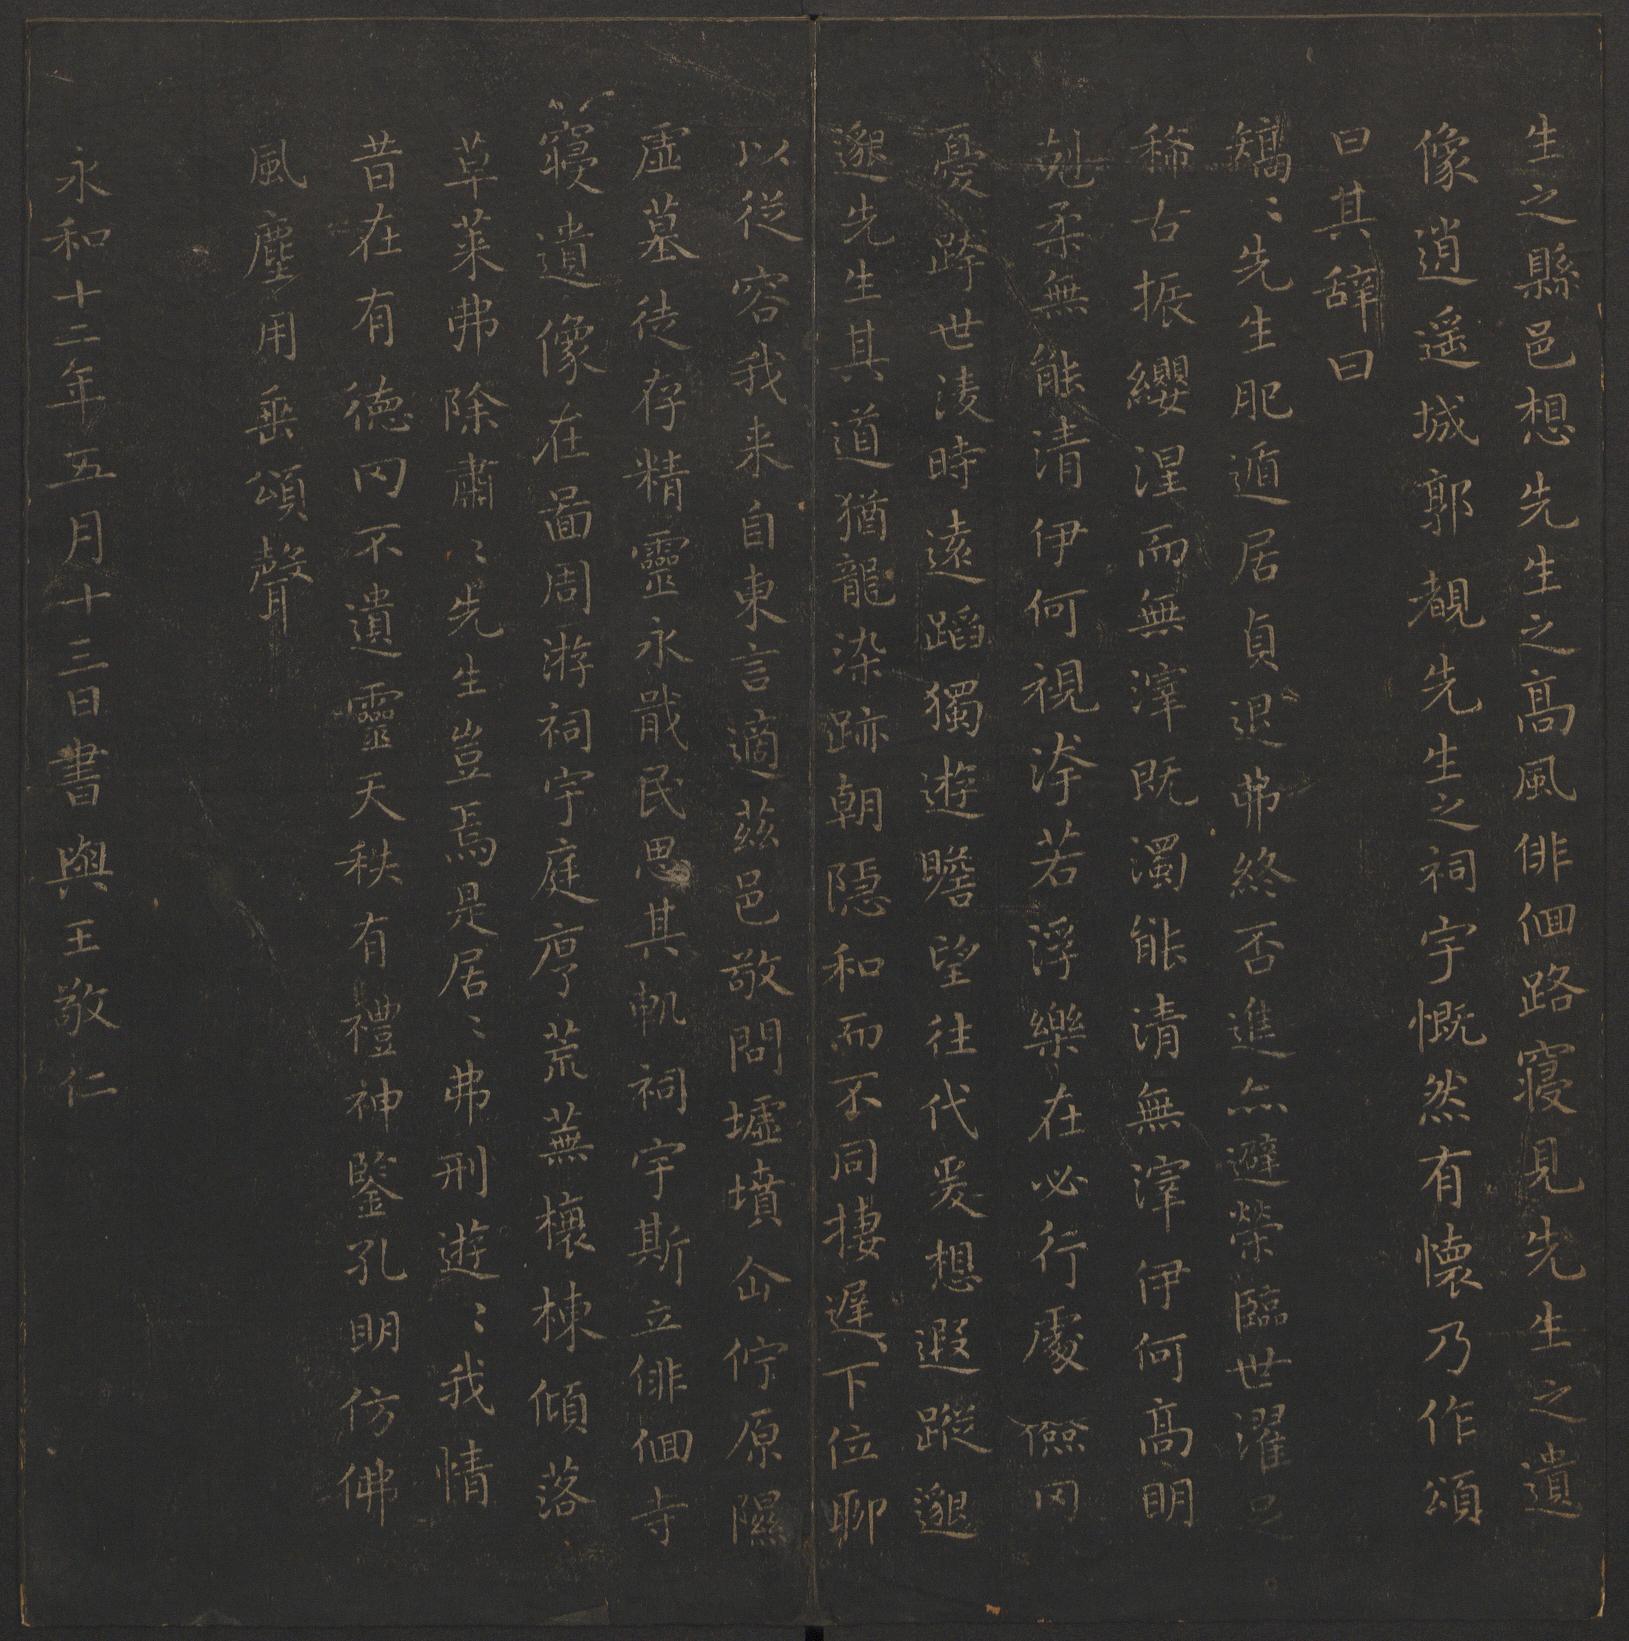 生之縣邑想先生之高風俳佪路寢見先生之遺
像逍遥城郭覩先生之祠宇慨然有懷乃作頌
曰其辞曰
矯〻先生肥遁居貞退弗終否進亦避榮臨世濯足
稀古振纓涅而無滓既濁能清無滓伊何高明
剋柔無能清伊何視洿若浮樂在必行處儉罔
憂跨世淩時遠蹈獨遊瞻望往代爰想遐蹤邈
邈先生其道猶龍染跡朝隱和而不同捿遲下位聊
以從容我来自東言適茲邑敬問墟墳企佇原隰
虛墓徒存精靈永戢民思其軌祠宇斯立俳佪寺
寢遺像在啚周游祠宇庭序荒蕪榱棟傾落
草萊弗除肅〻先生豈焉是居〻弗刑遊〻我情
昔在有德罔不遺靈天秩有禮神鑒孔明仿佛
風塵用垂頌聲
永和十二年五月十三日書與王敬仁